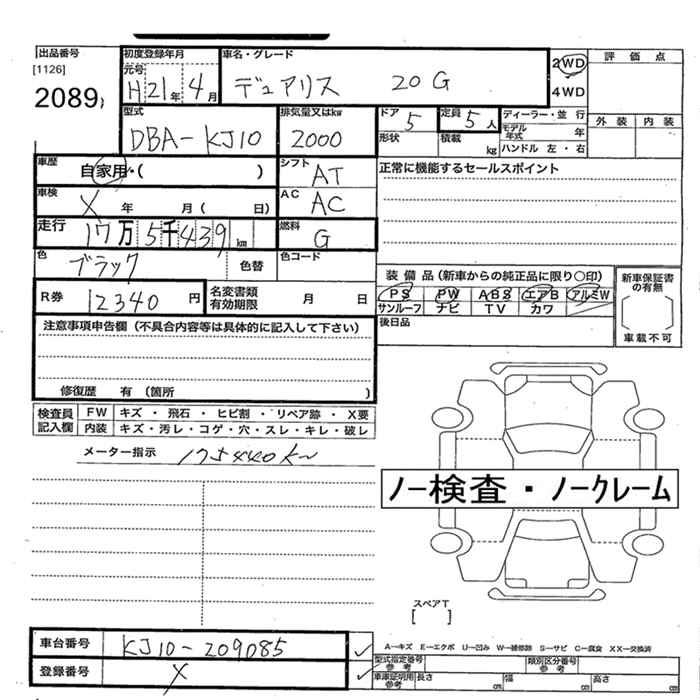 出品番号 初度登録年月 車名・グレード 評価点
[1126] 元号 2WD
2089 H21年4月 デュアリス 20G 4WD
型式 排気量又はkw ドア 定員 ディーラー・並行 外装 内装
DBA-KJ10 2000 5 5人 モデル年式 年
形状 積載 kg ハンドル 左・右
車歴 自家用・( ) シフト AT 正常に機能するセールスポイント
車検 X 年 月( 日) AC AC
走行 17万5千439km 燃料 G
色 ブラック 色替 色コード
装備品(新車からの純正品に限り○印) 新車保証書の有無
R券 12340円 名変書類有効期限 月 日 PS PW ABS エアB アルミW
サンルーフ ナビ TV カワ
注意事項申告欄(不具合内容等は具体的に記入して下さい) 後日品 車載不可
修復歴 有(箇所 )
検査員記入欄 FW キズ・飛石・ヒビ割・リペア跡・X要
内装 キズ・汚レ・コゲ・穴・スレ・キレ・破レ
メーター指示 175440km
ノー検査・ノークレーム
スペアT
[ ]
車台番号 KJ10-209085 ✓ A−キズ E−エクボ U−凹み W−補修跡 S−サビ C−腐食 XX−交換済
型式指定番号参考 類別区分番号参考
登録番号 X ✓ 車庫証明用参考 長さ cm 幅 cm 高さ cm